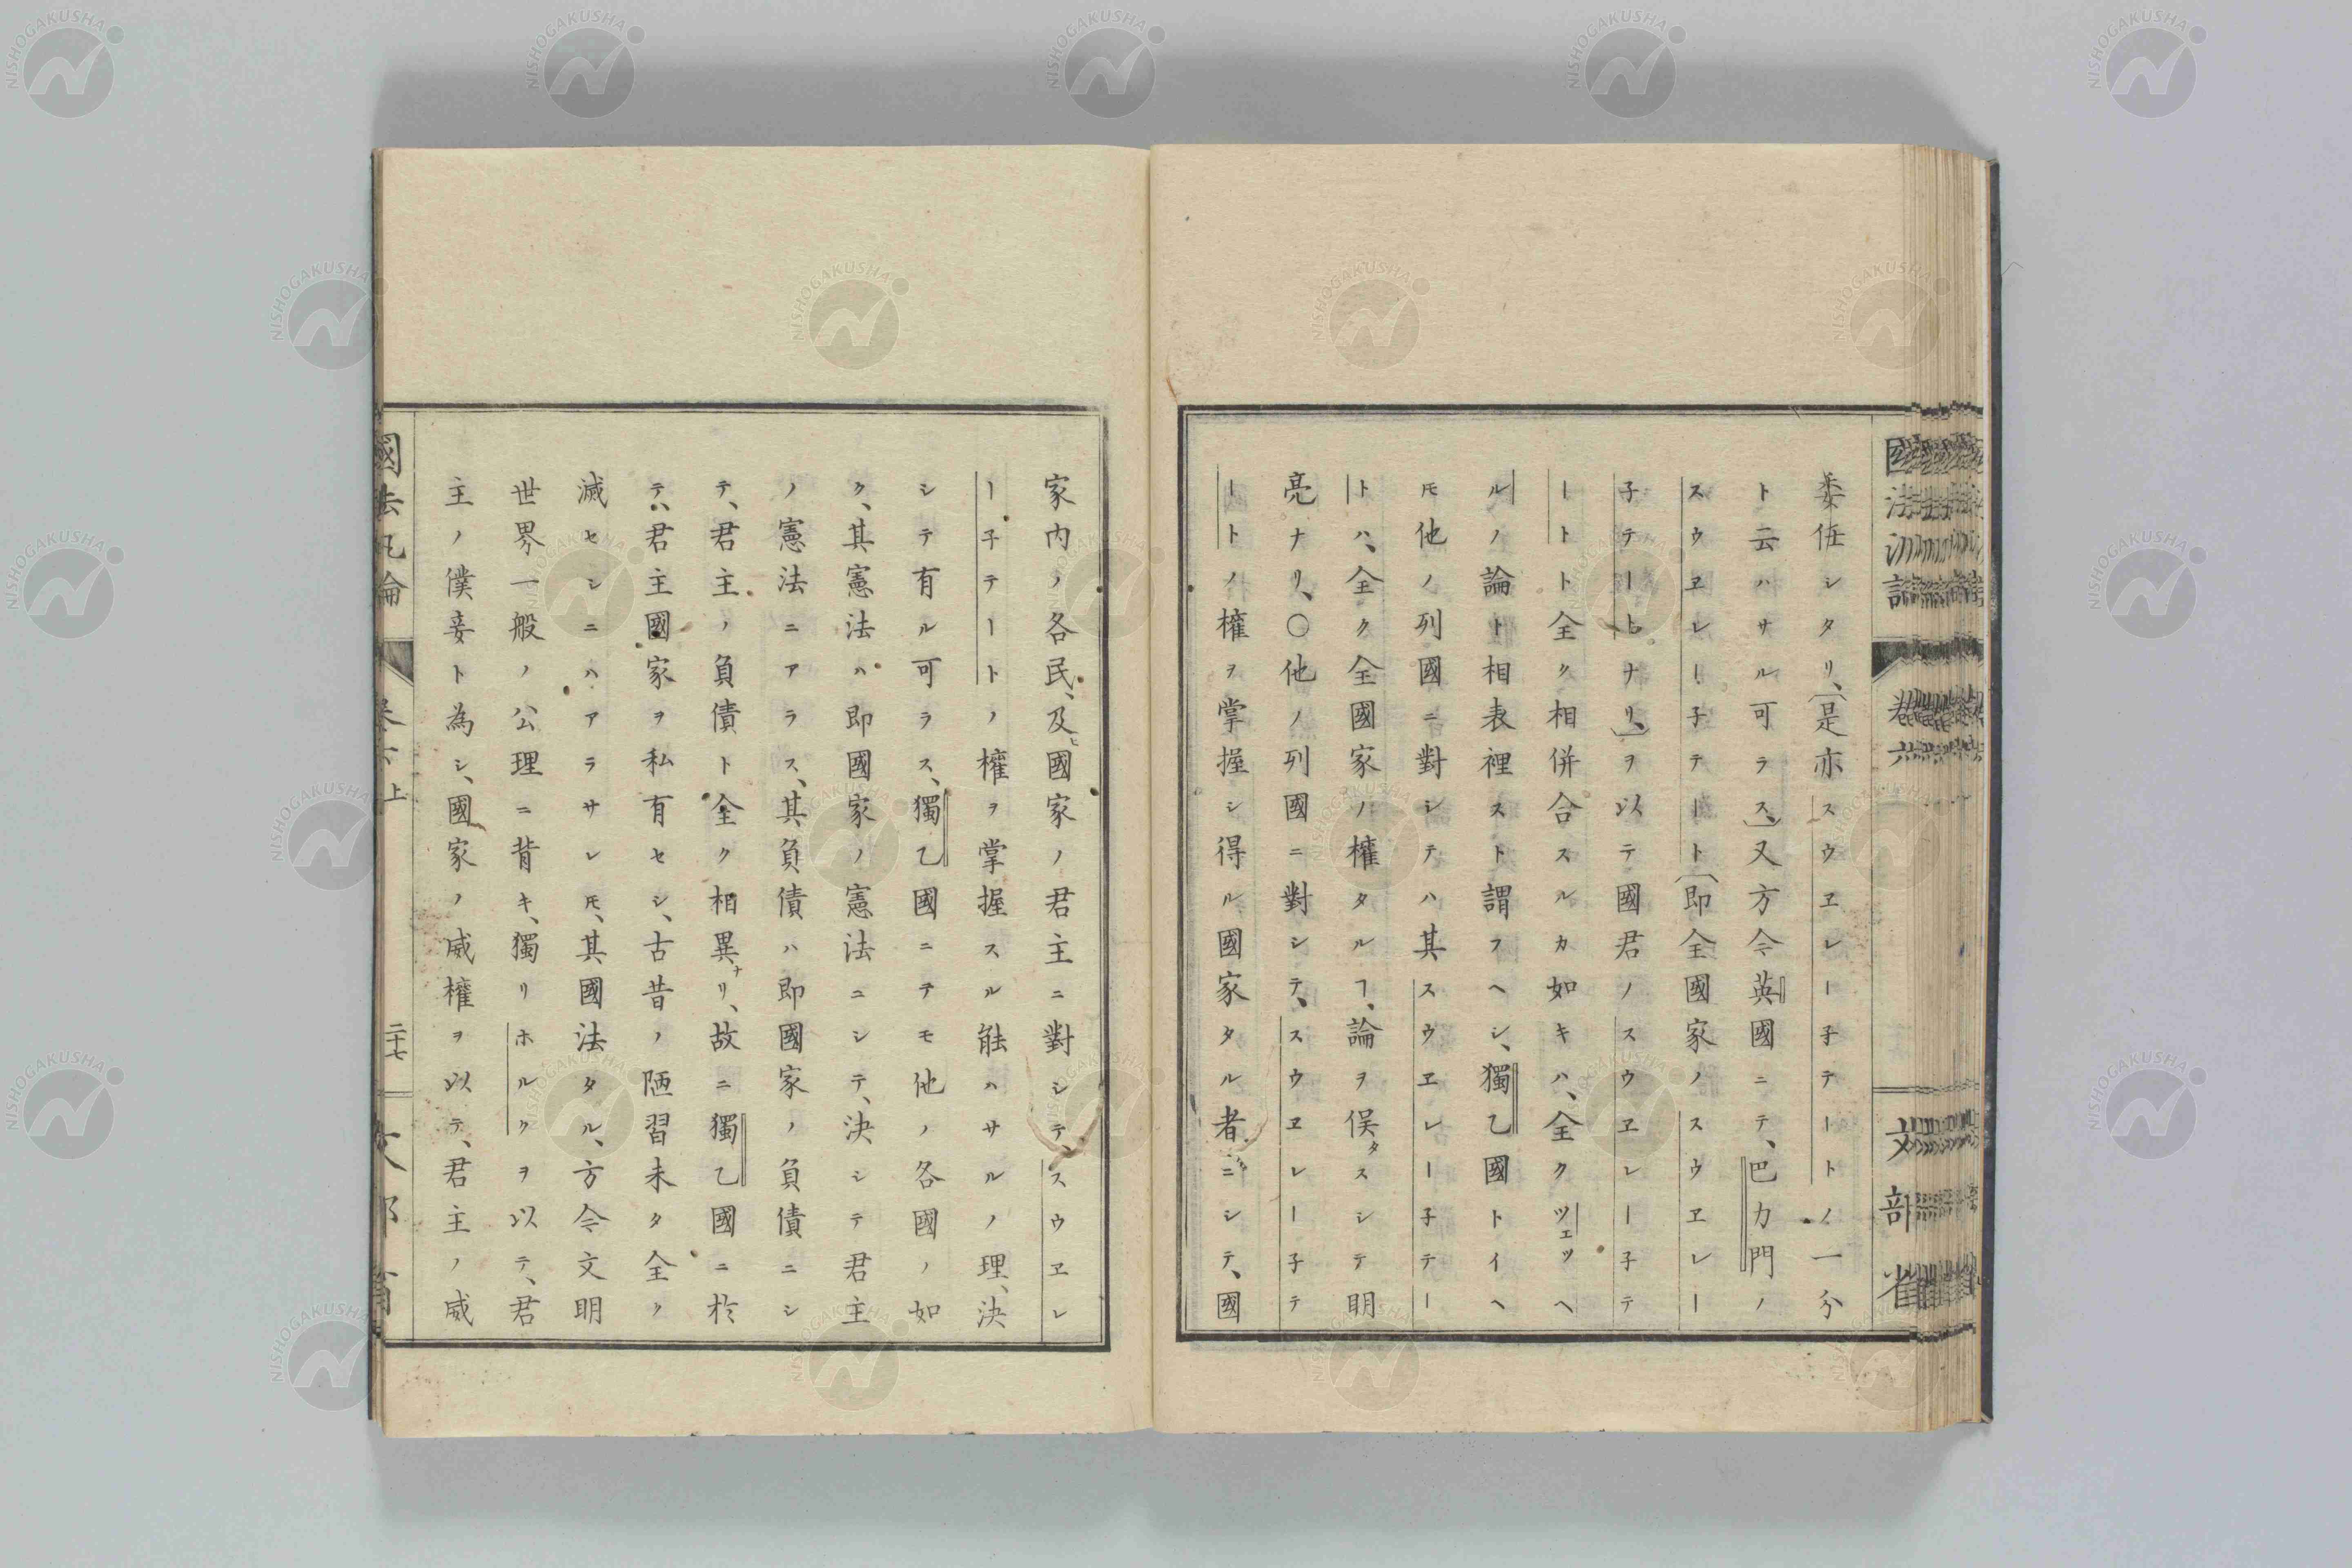 委任シタリ、(是亦スウヱレー子テートノ一分
ト云ハサル可ラス、)又方今英國ニテ、巴力門ノ
スウヱレー子テート(即全國家ノスウヱレー
子テートナリ、)ヲ以テ國君ノスウヱレー子テ
ートト全ク相併合スルカ如キハ、全クツェツヘ
ルノ論ト相表裡スト謂フヘシ、獨乙國トイヘ
𪜈他ノ列國ニ對シテハ其スウヱレー子テー
トハ、全ク全國家ノ權タルヿ、論ヲ俟タスシテ明
亮ナリ、〇他ノ列國ニ對シテ、スウヱレー子テ
ートノ權ヲ掌握シ得ル國家タル者ニシテ、國
家內ノ各民、及ヒ國家ノ君主ニ對シテ、スウヱレ
ー子テートノ權ヲ掌握スル能ハサルノ理、決
シテ有ル可ラス、獨乙國ニテモ他ノ各國ノ如
ク、其憲法ハ即國家ノ憲法ニシテ、決シテ君主
ノ憲法ニアラス、其負債ハ即國家ノ負債ニシ
テ、君主ノ負債ト全ク相異ナリ、故ニ獨乙國ニ於
テハ君主國家ヲ私有セシ、古昔ノ陋習未タ全ク
滅セシニハアラサレ𪜈、其國法タル、方今文明
世界一般ノ公理ニ背キ、獨リホルクヲ以テ、君
主ノ僕妾ト為シ、國家ノ威權ヲ以テ、君主ノ威
國法汎論 卷六上 二十七 文部省
國法汎論 卷六 文部省
NISHOGAKUSHA